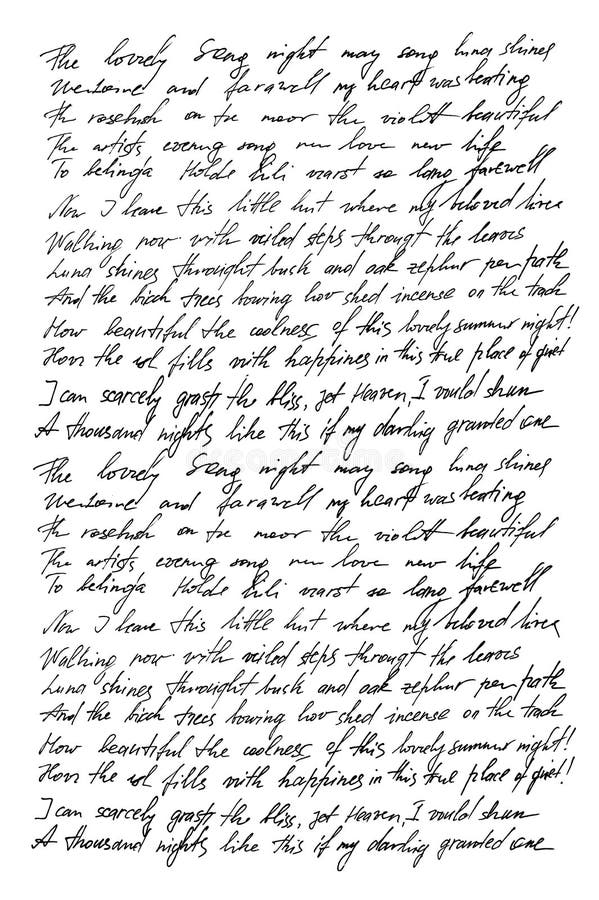 The lovely Song night may song luna shines
Welcome and farawell my heart was beating
th rosebush on the moor the violett beautiful
The artists, evening song new love new life
To belinda Holde Lili warst so long farewell
Now I leave this little hut where my beloved lives
Walking now with veiled steps througt the leaves
Luna shines throught bush and oak zephur per path
And the birch trees bowing low shed incense on the track
How beautiful the coolness of this lovely summer night!
How the sol fills with happines in this true place of quiet
I can scarcely grasp the bliss, jet Heaven, I would shun
A thousand nights like this if my darling granted one
The lovely Song night may song luna shines
Welcome and farawell my heart was beating
th rosebush on the moor the violett beautiful
The artists, evening song new love new life
To belinda Holde Lili warst so long farewell
Now I leave this little hut where my beloved lives
Walking now with veiled steps througt the leaves
Luna shines throught bush and oak zephur per path
And the birch trees bowing low shed incense on the track
How beautiful the coolness of this lovely summer night!
How the sol fills with happines in this true place of quiet!
I can scarcely grasp the bliss, jet Heaven, I would shun
A thousand nights like this if my darling granted one